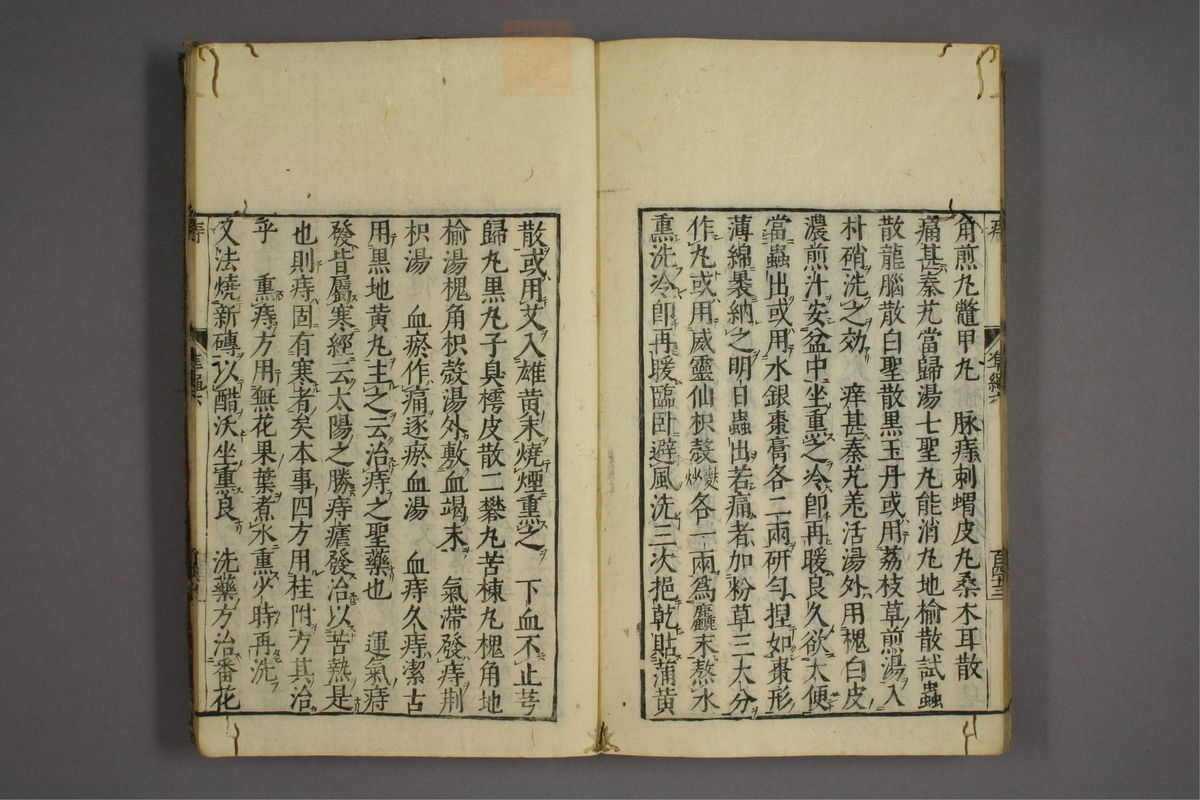 角煎丸鼈甲丸　脉痔刺蝟皮丸桑木耳散
痛甚秦艽當歸湯七聖丸能消丸地榆散試蟲
散龍腦散白聖散黒玉丹或用荔枝草煎湯入
朴硝洗之効　痒甚秦艽羌活湯外用槐白皮
濃煎汁安盆中坐熏之冷即再暖良久欲大便
當蟲出或用水銀棗膏各二兩研勻捏如棗形
薄綿裹納之明日蟲出若痛者加粉草三大分
作丸或用威靈仙枳殼麩炒各一兩爲麤末熬水
熏洗冷即再暖臨卧避風洗三次挹乾貼蒲黄
散或用艾入雄黄末燒煙熏之　下血不止芎
歸丸黒丸子臭樗皮散二礬丸苦楝丸槐角地
榆湯槐角枳殼湯外敷血竭末　氣滯發痔荆
枳湯　血瘀作痛逐瘀血湯　血痔久痔潔古
用黒地黄丸主之云治痔之聖藥也　運氣痔
發皆屬寒經云太陽之勝痔瘧發治以苦熱是
也則痔固有寒者矣本事四方用桂附方其治
乎　熏痔方用無花果葉煮水熏少時再洗
又法燒新磚以醋沃坐熏良　洗藥方治番花